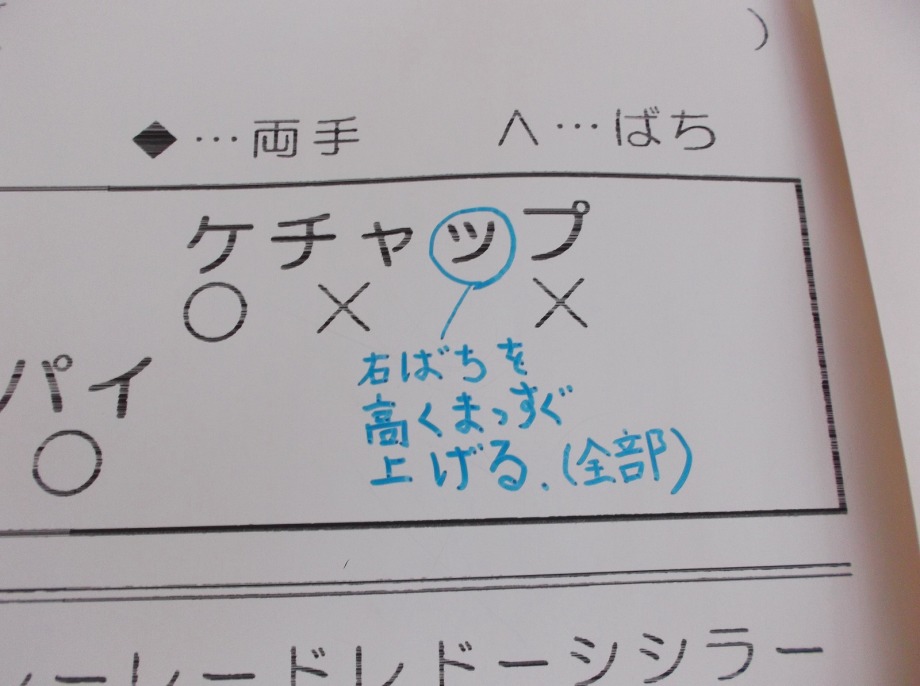 )
◆…両手 ∧…ばち
ケチャップ
○ × ×
パイ
○
右ばちを
高くまっすぐ
上げる.(全部)
ーレードレドーシシラー